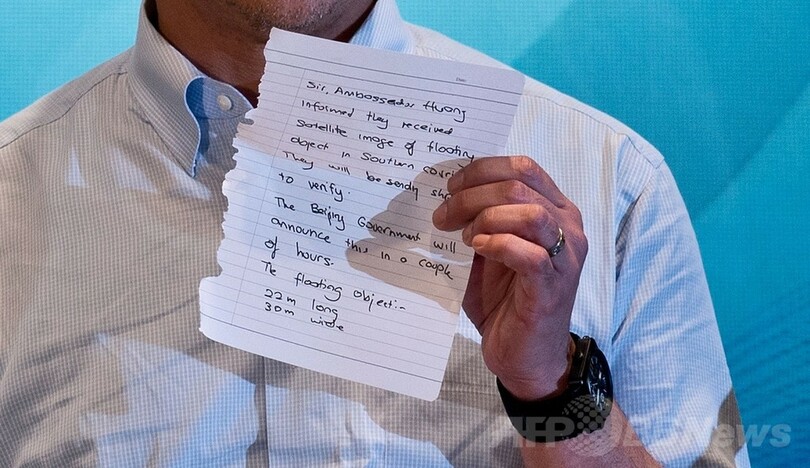 Date:
Sir, Ambassador Huang
informed they received
Satellite image of floating
object in Southern corri
They will be sending sh
to verify.
The Beijing Government will
announce this in a couple
of hours.
The floating object:-
22m long
30m wide
AFP BBNews